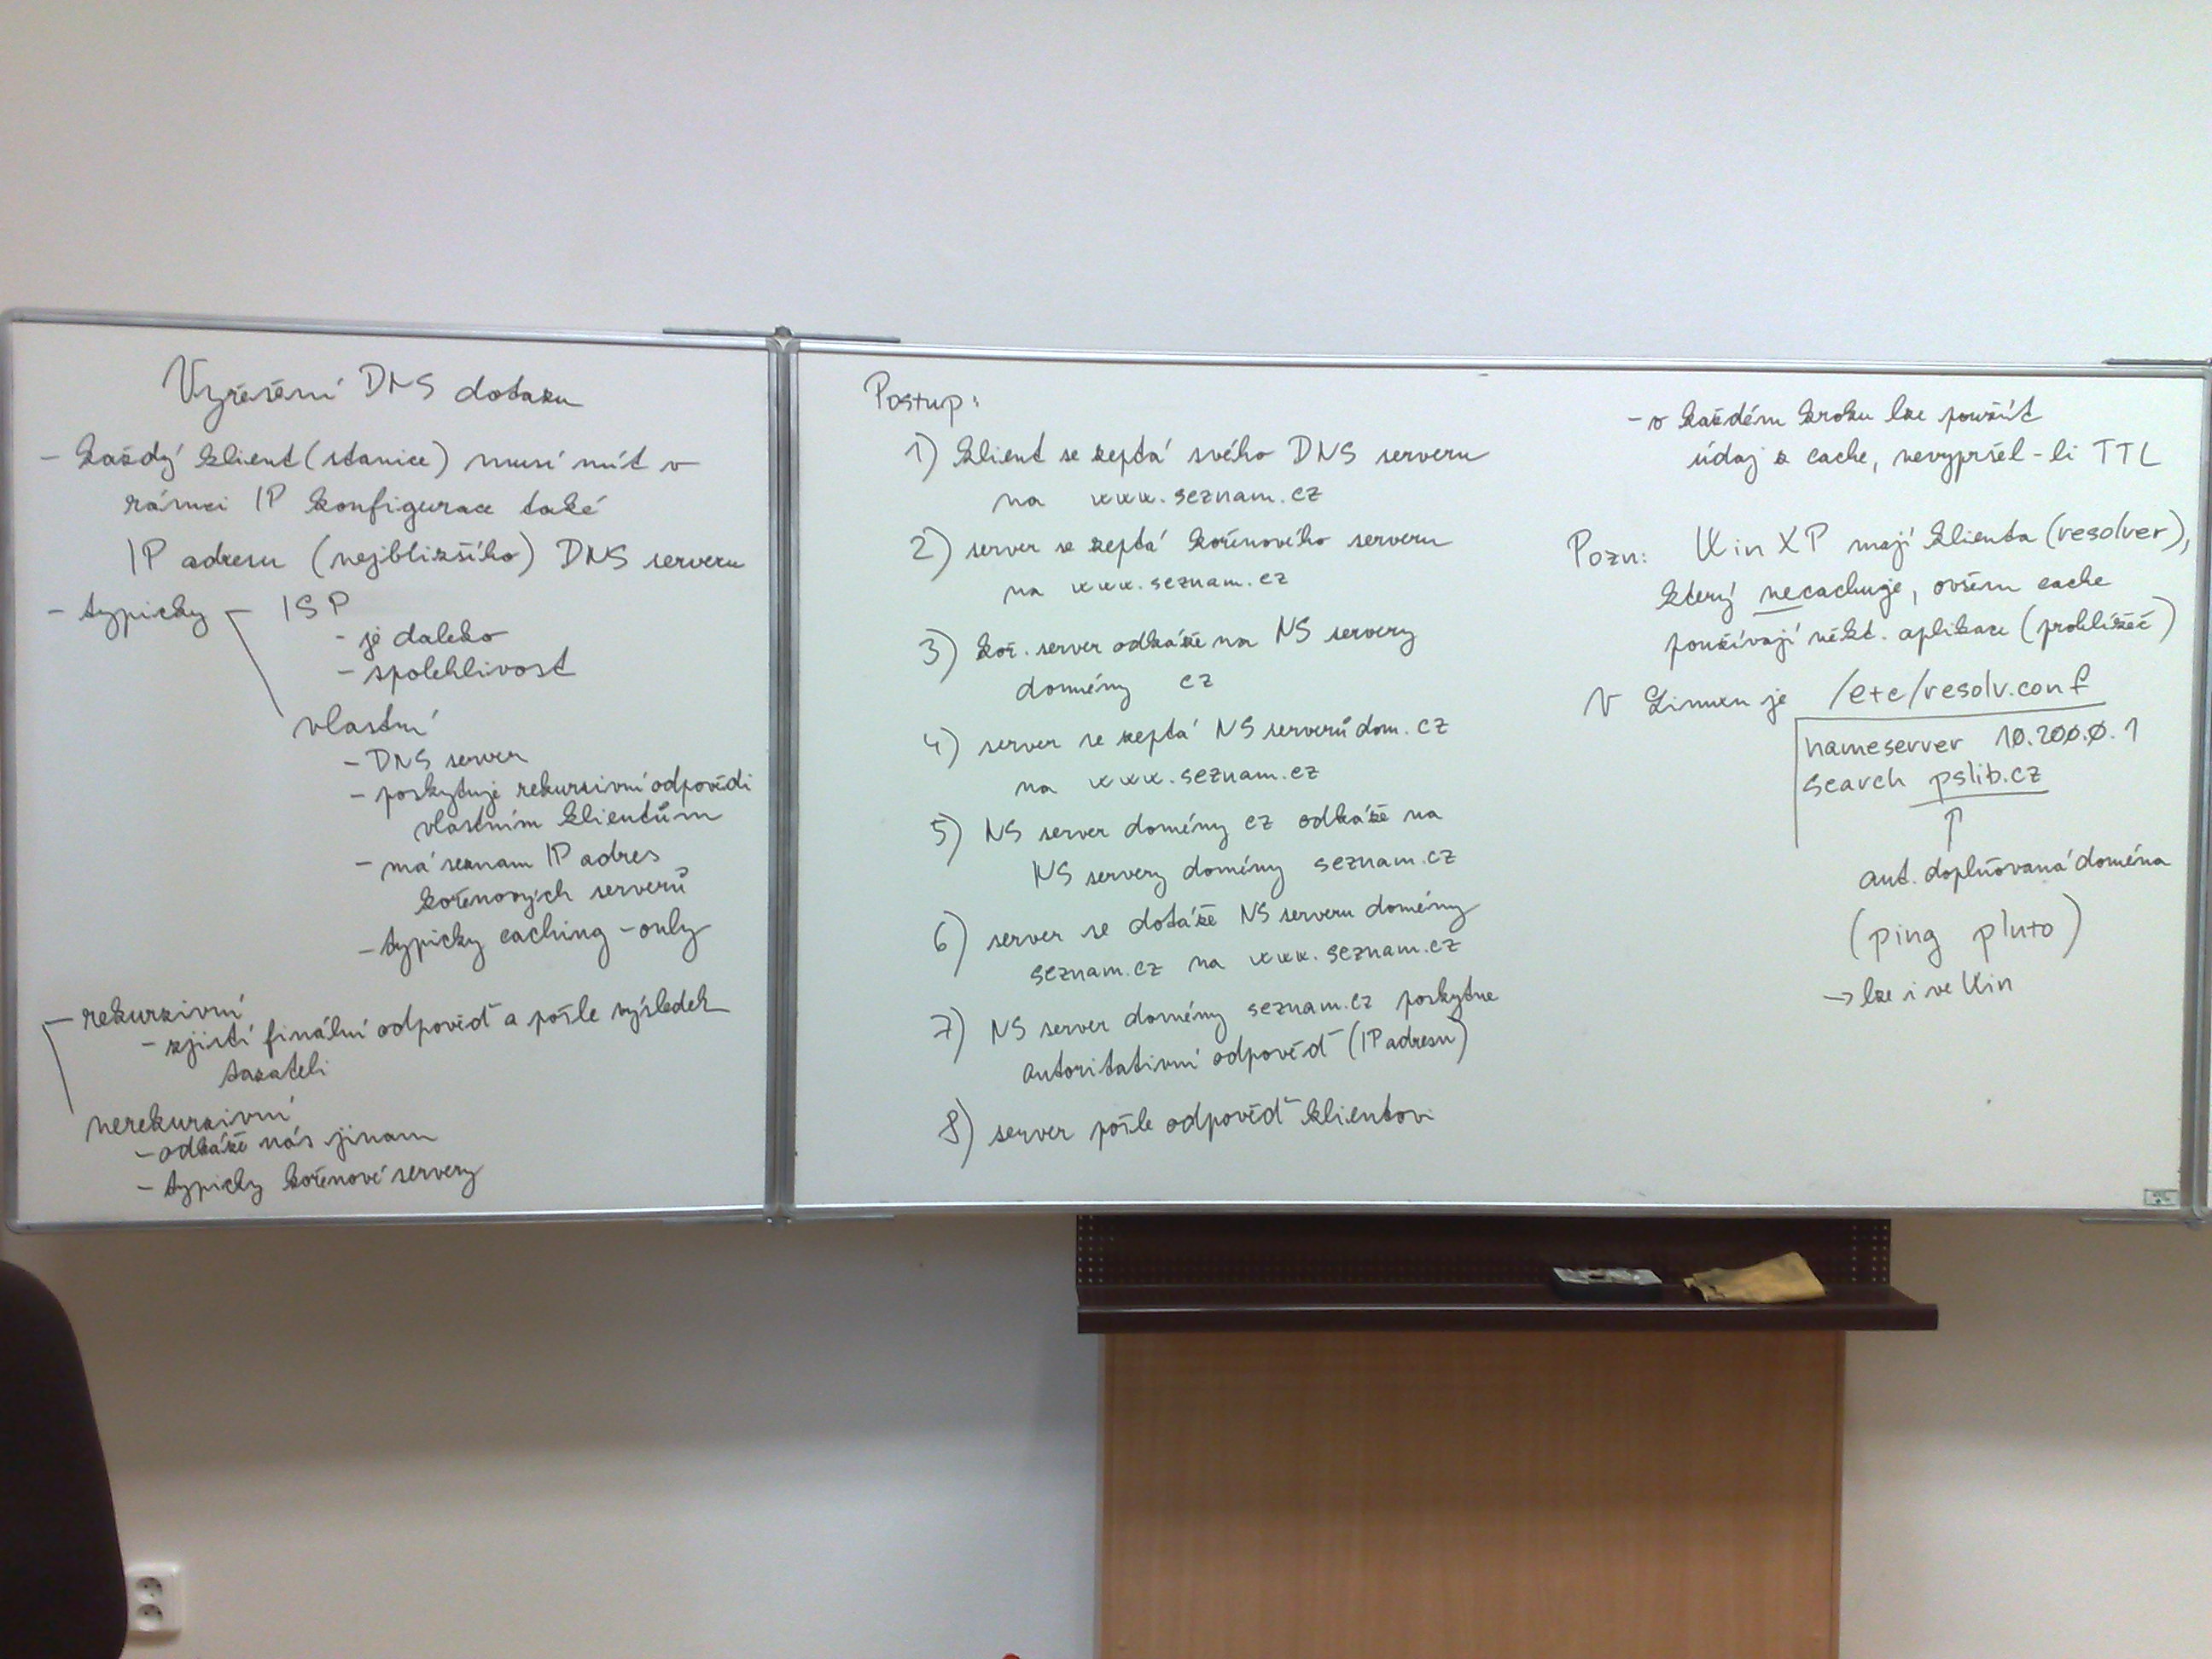 Vyřešení DNS dotazu
- každý klient (stanice) musí mít v
rámci IP konfigurace také
IP adresu (nejbližšího) DNS serveru
- typicky - ISP
- je daleko
- spolehlivost
vlastní
- DNS server
- poskytuje rekurzivní odpovědi
vlastním klientům
- má seznam IP adres
kořenových serverů
- typicky caching-only
- rekurzivní
- zjistí finální odpověď a pošle výsledek
tazateli
nerekurzivní
- odkáže nás jinam
- typicky kořenové servery
Postup:
1) klient se zeptá svého DNS serveru
na www.seznam.cz
2) server se zeptá kořenového serveru
na www.seznam.cz
3) koř. server odkáže na NS servery
domény cz
4) server se zeptá NS serverů dom. cz
na www.seznam.cz
5) NS server domény cz odkáže na
NS servery domény seznam.cz
6) server se dotáže NS serveru domény
seznam.cz na www.seznam.cz
7) NS server domény seznam.cz poskytne
autoritativní odpověď (IP adresu)
8) server pošle odpověď klientovi
- v každém kroku lze použít
údaj z cache, nevypršel-li TTL
Pozn: Win XP mají klienta (resolver),
který necachuje, ovšem cache
používají někt. aplikace (prohlížeč)
V Linuxu je /etc/resolv.conf
nameserver 10.200.0.1
search pslib.cz
↑
aut. doplňovaná doména
(ping pluto)
→ lze i ve Win